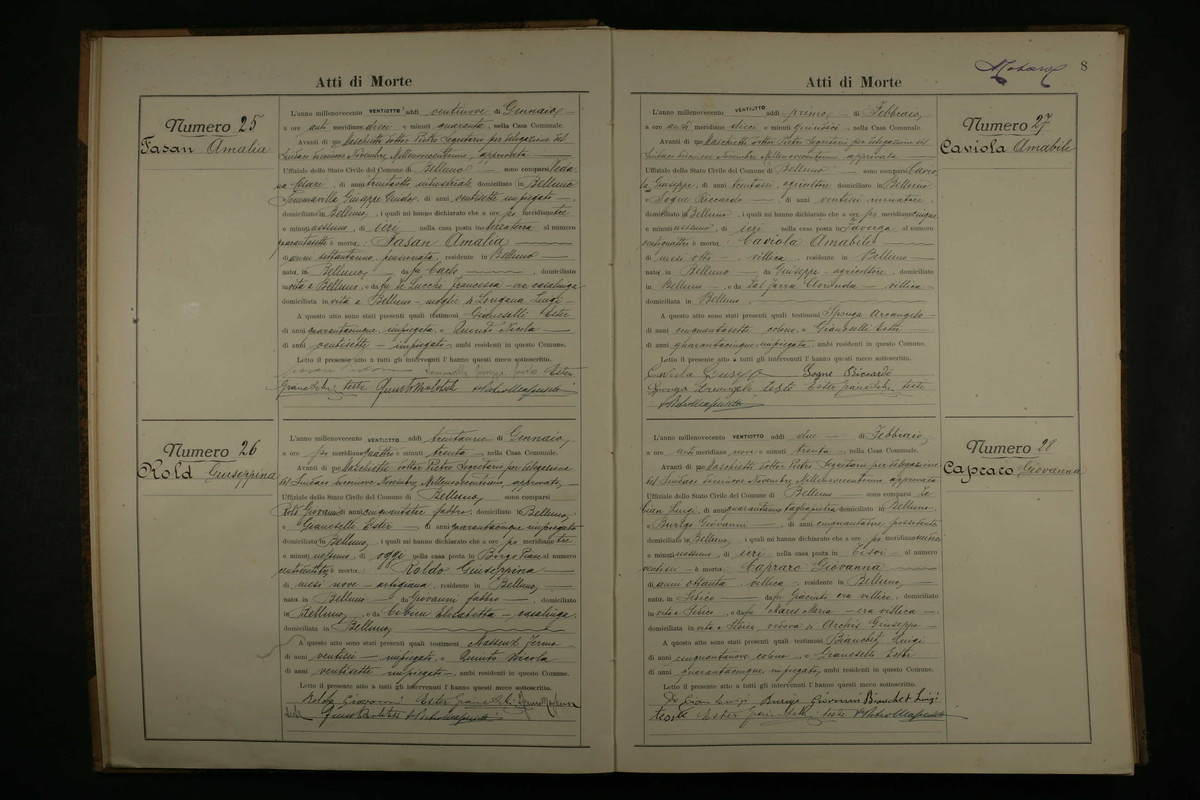 Atti di Morte
Numero 25
Fasan Amalia
L'anno millenovecento VENTIOTTO addì ventinove di Gennaio,
a ore anti meridiane dieci e minuti quaranta, nella Casa Comunale.
Avanti di me Maschietti dottor Pietro Segretario per delegazione del
Sindaco Novembre Millenovecento approvata
Ufficiale dello Stato Civile del Comune di Belluno sono comparsi
Cesare, di anni trentotto industriale domiciliato in Belluno
e Tommasella Giuseppe Guido, di anni ventisette impiegato
domiciliato in Belluno, i quali mi hanno dichiarato che a ore po meridiane tre
e minuti nessuno, di ieri nella casa posta in al numero
quarantasette è morta Fasan Amalia
di anni settantanno, pensionata, residente in Belluno
nata in Belluno, da fu Carlo domiciliato
in vita a Belluno, e da fu De Lucche Francesca era casalinga
domiciliata in vita a Belluno - moglie di Longana Luigi
A questo atto sono stati presenti quali testimoni Gianeselli Ester
di anni quarantacinque, impiegata, e Nicola
di anni ventisette impiegato, ambi residenti in questo Comune.
Letto il presente atto a tutti gli intervenuti l'hanno questi meco sottoscritto.
teste
Numero 26
Rold Giuseppina
L'anno millenovecento VENTIOTTO addì trentauno di Gennaio,
a ore po meridiane quattro e minuti trenta, nella Casa Comunale.
Avanti di me Maschietti dottor Pietro Segretario per delegazione
del Sindaco Novembre Millenovecento approvata,
Ufficiale dello Stato Civile del Comune di Belluno, sono comparsi
Rold Giovanni di anni cinquantatre fabbro, domiciliato in Belluno,
e Gianeselli Ester di anni quarantacinque impiegata
domiciliata in Belluno, i quali mi hanno dichiarato che a ore po meridiane tre
e minuti nessuno, di oggi nella casa posta in Borgo Piave al numero
è morta Roldo Giuseppina
di mesi nove artigiana, residente in Belluno,
nata in Belluno da Giovanni fabbro, domiciliato
in Belluno, e da Elisabetta casalinga
domiciliata in Belluno,
A questo atto sono stati presenti quali testimoni Fermo
di anni ventisei impiegato e Nicola
di anni ventisette impiegato, ambi residenti in questo Comune.
Letto il presente atto a tutti gli intervenuti l'hanno questi meco sottoscritto.
Rolda Giovanni Ester
Atti di Morte
8
Numero 27
Caviola Amabile
L'anno millenovecento VENTIOTTO addì primo di Febbraio,
a ore anti meridiane dieci e minuti, nella Casa Comunale.
Avanti di me Maschietti dottor Pietro Segretario per delegazione del
Sindaco Novembre Millenovecento approvata
Ufficiale dello Stato Civile del Comune di Belluno sono comparsi Cavio
la Giuseppe, di anni trentasei, agricoltore, domiciliato in Belluno
e Sogne Riccardo di anni ventisei muratore
domiciliato in Belluno, i quali mi hanno dichiarato che a ore po meridiane cinque
e minuti nessuno, di ieri nella casa posta in Faverga al numero
ventiquattro è morta Caviola Amabile
di mesi otto villica, residente in Belluno
nata in Belluno da Giuseppe agricoltore, domiciliato
in Belluno e da Dal Farra villica
domiciliata in Belluno
A questo atto sono stati presenti quali testimoni Sponga Arcangelo
di anni cinquantasette colono e Gianeselli Ester
di anni quarantacinque impiegata, ambi residenti in questo Comune.
Letto il presente atto a tutti gli intervenuti l'hanno questi meco sottoscritto.
Caviola Sogne Riccardo
Sponga Arcangelo teste Ester teste
Numero 28
Capraro Giovanna
L'anno millenovecento VENTIOTTO addì due di Febbraio,
a ore anti meridiane nove e minuti trenta, nella Casa Comunale.
Avanti di me Maschietti dottor Pietro Segretario per delegazione
del Sindaco Novembre Millenovecento approvata
Ufficiale dello Stato Civile del Comune di Belluno sono comparsi De
Cian Luigi, di anni quarantanno tagliapietra domiciliato in Belluno
e Burigo Giovanni, di anni cinquantatre possidente
domiciliato in Belluno, i quali mi hanno dichiarato che a ore po meridiane
e minuti nessuno, di ieri nella casa posta in Tisoi al numero
ventisei è morta Capraro Giovanna
di anni ottanta villica, residente in Belluno,
nata in Sedico da fu Giacinto era villico, domiciliato
in vita a Sedico, e da fu Mares Maria era villica
domiciliata in vita a Sedico, vedova di Archis Giuseppe
A questo atto sono stati presenti quali testimoni Bianchet Luigi
di anni cinquantanove colono e Gianeselli Ester
di anni quarantacinque impiegata, ambi residenti in questo Comune.
Letto il presente atto a tutti gli intervenuti l'hanno questi meco sottoscritto.
De Cian Luigi Burigo Giovanni Bianchet Luigi
teste Ester teste